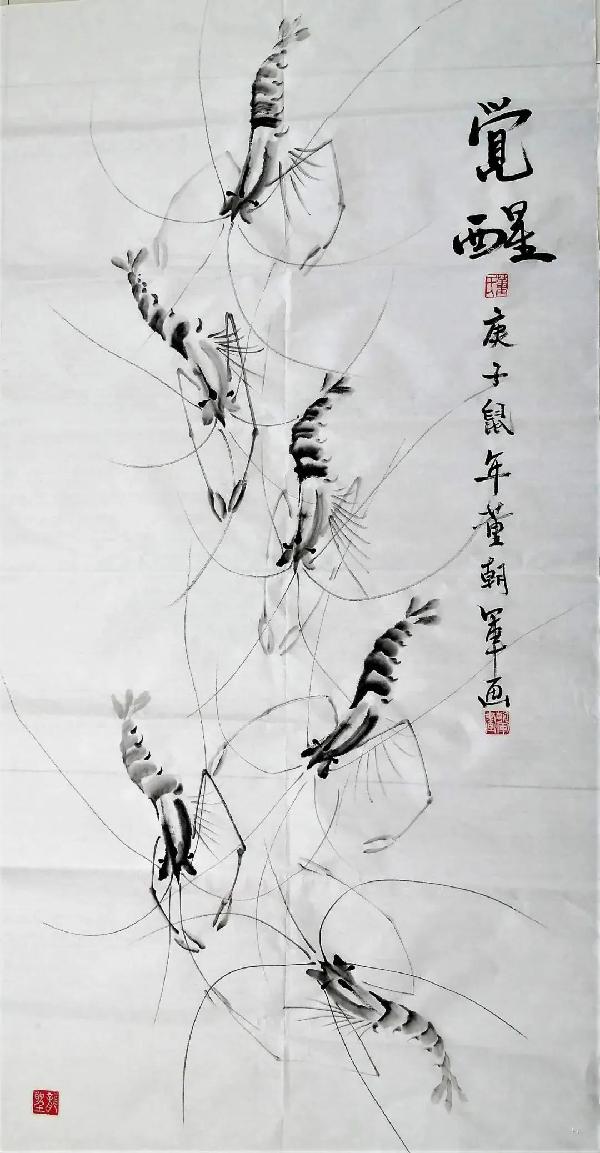 覺醒
庚子鼠年董朝軍画